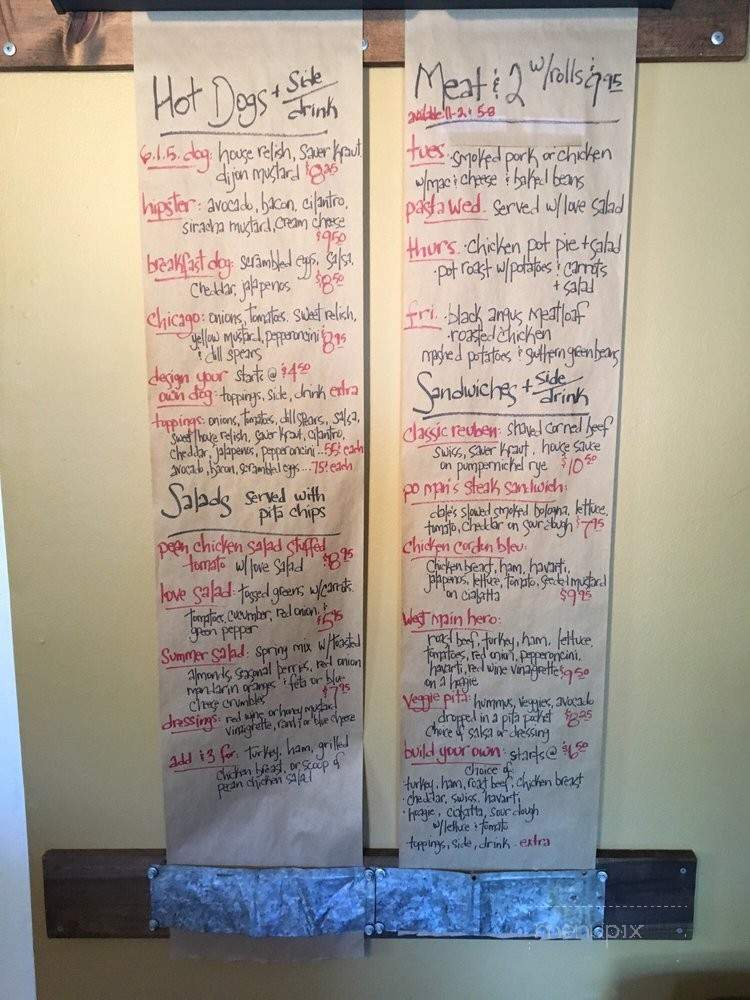 Hot Dogs + Side/drink
6.1.5. dog: house relish, Sauer kraut
dijon mustard $8.25
hipster: avocado, bacon, cilantro,
siracha mustard, cream cheese
$9.50
breakfast dog: scrambled eggs, salsa,
cheddar, jalapenos $8.50
Chicago: onions, tomatoes, sweet relish,
yellow mustard, pepperoncini $8.95
& dill spears
design your starts @ $4.50
own dog: toppings, side, drink extra
toppings: onions, tomatoes, dill spears, salsa,
sweet/house relish, sauer kraut, cilantro,
cheddar, jalapenos, pepperoncini...55¢ each
avocado, bacon, scrambled eggs...75¢ each
Salads served with
pita chips
pecan chicken salad stuffed
tomato w/love salad $8.95
love salad: tossed greens w/carrots
tomatoes, cucumber, red onion, &
green pepper $5.95
Summer salad: spring mix w/toasted
almonds, seasonal berries, red onion
mandarin oranges & feta or blue
cheese crumbles $7.95
dressings: red wine, or honey mustard
vinaigrette, ranch or blue cheese
add $3 for: turkey, ham, grilled
chicken breast, or scoop of
pecan chicken salad
Meat & 2 w/rolls $9.95
available 11-2 & 5-8
tues. smoked pork or chicken
w/mac & cheese & baked beans
pasta wed. served w/love salad
thurs. · chicken pot pie + salad
· pot roast w/potatoes & carrots
+ salad
fri. · black angus meatloaf
· roasted chicken
mashed potatoes & suthern green beans
Sandwiches + Side/drink
classic reuben: shaved corned beef
swiss, sauer kraut, house sauce
on pumpernickel rye $10.50
po man's steak sandwich:
dale's slowed smoked bologna, lettuce,
tomato, cheddar on sour dough $7.95
Chicken cordun bleu:
Chicken breast, ham, havarti,
jalapenos, lettuce, tomato, seeded mustard
on ciabatta $9.95
West main hero:
roast beef, turkey, ham, lettuce,
tomatoes, red onion, pepperoncini,
havarti, red wine vinaigrette $9.50
on a hoagie
Veggie pita: hummus, veggies, avocado
dropped in a pita pocket $8.25
choice of salsa or dressing
build your own: starts @ $6.50
choice of:
turkey, ham, roast beef, chicken breast
· cheddar, swiss, havarti
· hoagie, ciabatta, sour dough
w/lettuce & tomato
toppings, side, drink - extra
openmpix